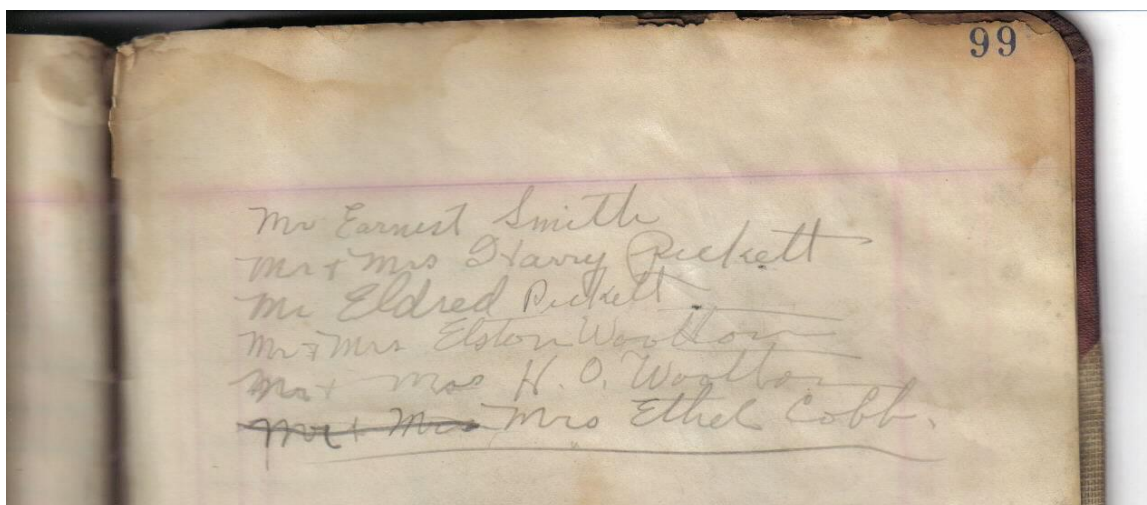 99
Mr Earnest Smith
Mr + Mrs Harry Pickett
Mr Eldred Pickett
Mr + Mrs Elston Wootton
Mr + Mrs H. O. Wootton
Mr + Mrs Mrs Ethel Cobb.